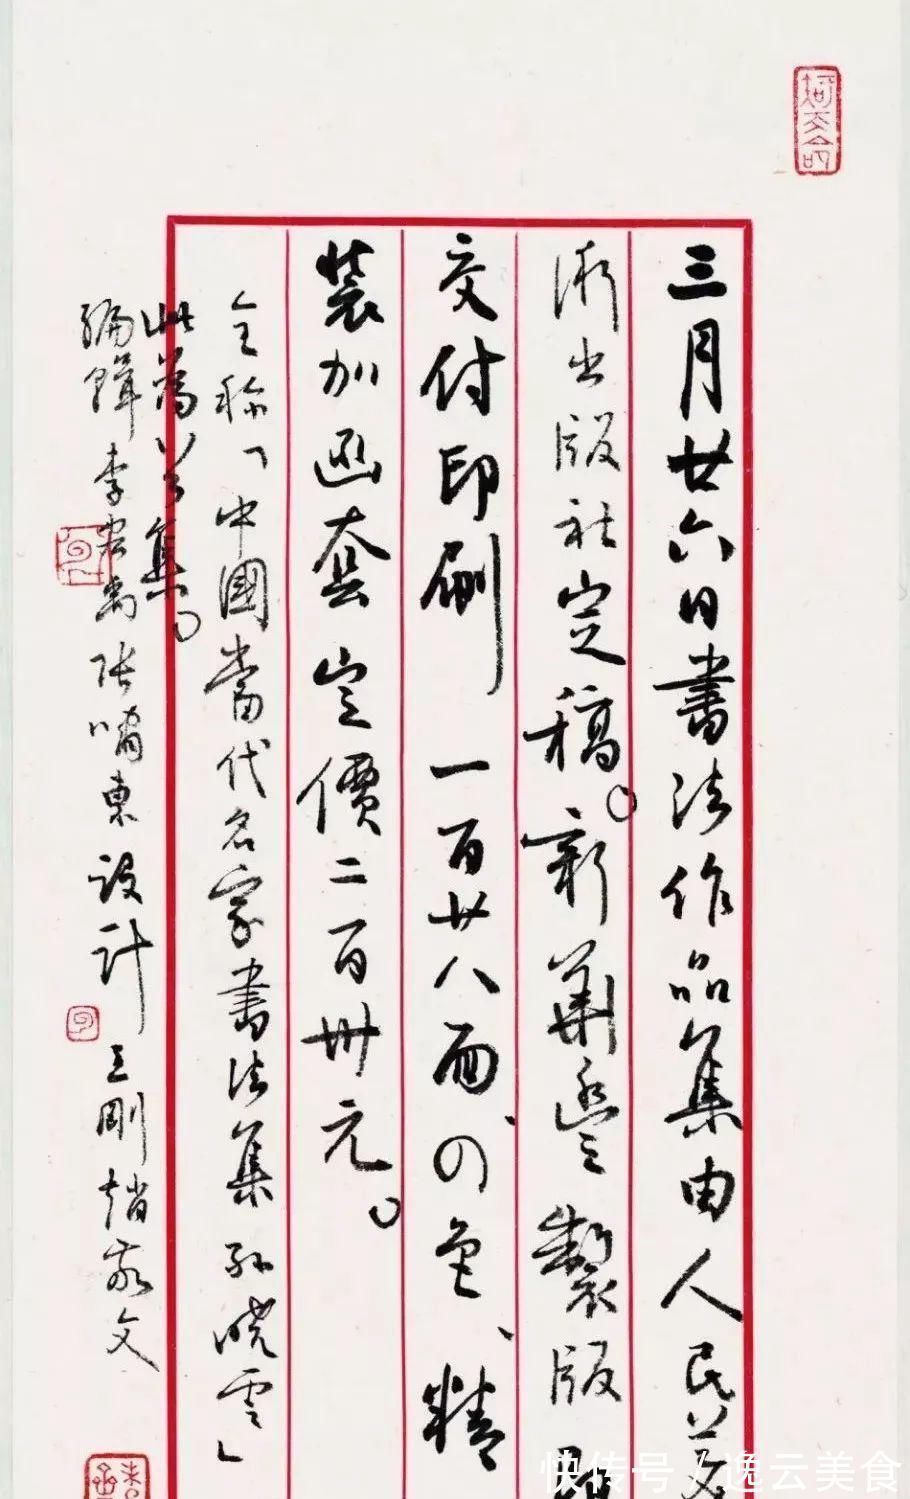 三月廿六日書法作品集由人民美
術出版社定稿。新華豐製版
交付印刷 一百廿八面、四色、精
裝加函套 定價二百卅元。
全称「中國當代名家書法集 孫曉雲」
此為八
集。
編輯 李宏禹 張嘯東 設計 王剛 趙
文
快传号/逸云美食